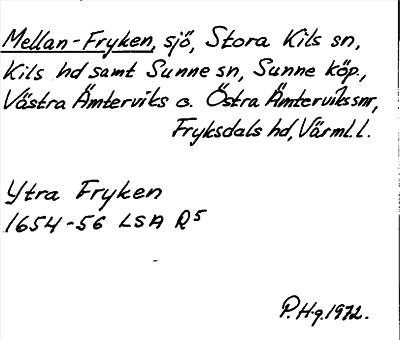 Mellan-Fryken, sjö, Stora Kils sn,
Kils hd samt Sunne sn, Sunne köp.,
Västra Ämterviks o. Östra Ämterviks snr,
Fryksdals hd, Värml. l.
Ytra Fryken
1654-56 LSA R5
P. H-g. 1972.